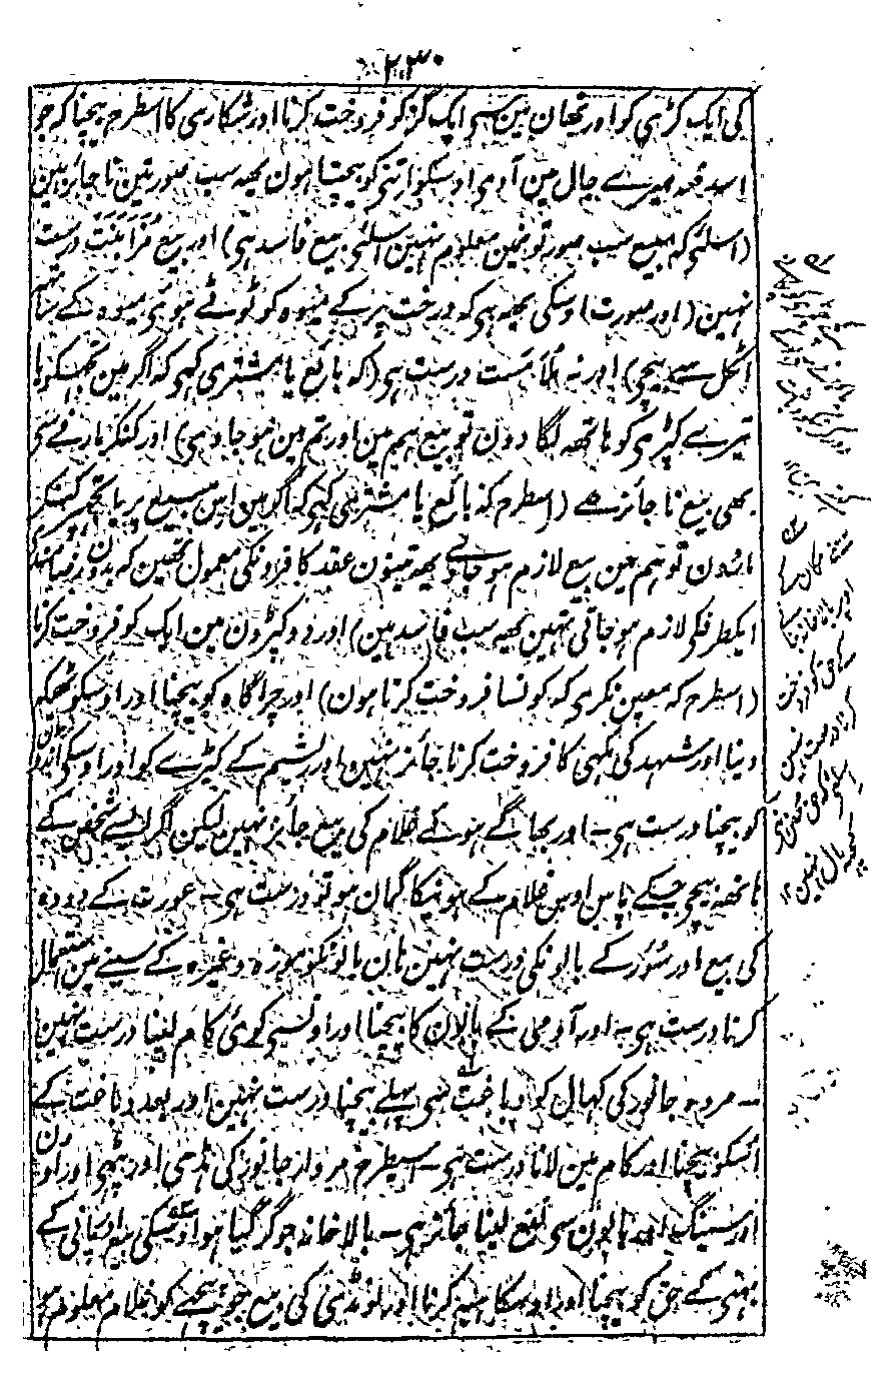 ۲۳۰
کی ایک کڑی کو اور تھان مین سی ایک گز کو فروخت کرنا اور شکاری کا اسطرح بیچنا کہ جو
اسدفعہ میرے جال مین آوی اوسکو اتنی کو بیچتا ہون یہہ سب صورتین نا جائز ہین
(اسلئی کہ مبیع سب صورتون مین معلوم نہین اسلئی بیع فاسد ہی) اور بیع مزابنت درست
نہین (اور صورت اوسکی یہہ ہی کہ درخت پر کے میوہ کو ٹوٹے ہوئی میوہ کے ساتھہ
اٹکل سے بیچی) اور نہ ملامست درست ہی (کہ بائع یا مشتری کہی کہ اگر مین تجھکو یا
تیرے کپڑی کو ہاتھہ لگا دون تو بیع ہم مین اور تم مین ہو جاوی) اور کنکر مارنے سی
بھی بیع نا جائز ہے (اسطرح کہ بائع یا مشتری کہی کہ اگر مین اس مبیع پر یا تجھپر کنکر
مارون تو ہم مین بیع لازم ہو جاوے یہہ تینون عقد کافرونکی معمول تھین کہ بدون رضامندی
ایکطرفکی لازم ہو جاتی تہین یہہ سب فاسد ہین) اور دو کپڑون مین ایک کو فروخت کرنا
(اسطرح کہ معین نکری کہ کونسا فروخت کرتا ہون) اور چراگاہ کو بیچنا اور اوسکو ٹھیکہ
دینا اور شہد کی مکہی کا فروخت کرنا جائز نہین اور ریشم کے کیڑے کو اور اوسکی انڈون
کو بیچنا درست ہی ۔ اور بھاگے ہوئے غلام کی بیع جائز نہین لیکن اگر ایسے شخص کے
ہاتھہ بیچی جسکے پاس اوس غلام کے ہونیکا گمان ہو تو درست ہی ۔ عورت کے دودہ
کی بیع اور سؤر کے بالونکی درست نہین ہان بالونکو موزہ وغیرہ کے سینے مین استعمال
کرنا درست ہی ۔ اور آدمی کے بالون کا بیچنا اور اونسی کوئی کام لینا درست نہین
۔ مردہ جانور کی کہال کو دباغت سی پہلے بیچنا درست نہین اور بعد دباغت کے
اسکو بیچنا اور کام مین لانا درست ہی ۔ اسیطرح مردار جانور کی ہڈی اور پٹھی اور اون
اور سینگ اور بالون سی نفع لینا جائز ہی ۔ بالا خانہ جو گر گیا ہو اوسکی بیع اور پانی کے
بہنی کے حق کو بیچنا اور اوسکا ہبہ کرنا اور لونڈی کی بیع جو پیچھے کو غلام معلوم ہو
یعنے مکان کے
اوپر بالا خانہ بنانے
کے حق کو فروخت
کرنا درست نہین
اسلئے کہ حق
مال نہین ۱۲